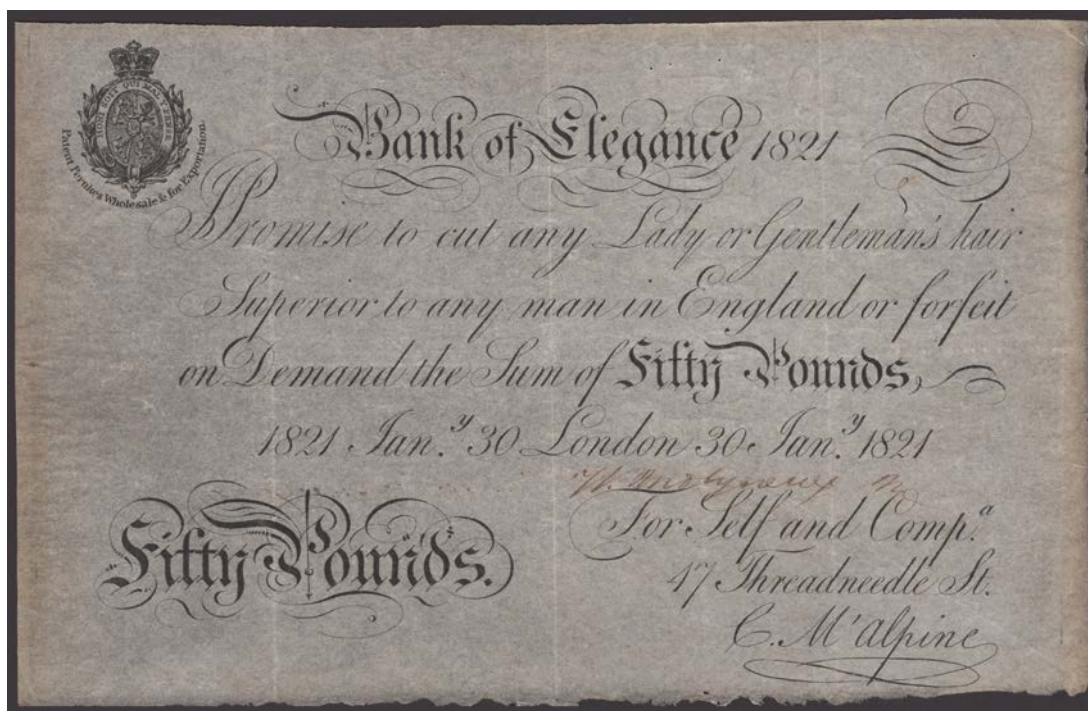 HONI SOIT QUI MAL Y PENSE
Patent Perukes Wholesale & for Exportation.
Bank of Elegance 1821
I Promise to cut any Lady or Gentleman's hair
Superior to any man in England or forfeit
on Demand the Sum of Fifty Pounds,
1821 Jan.y 30 London 30 Jan.y 1821
For Self and Comp.a
Fifty Pounds.
47 Threadneedle St.
C. M'alpine